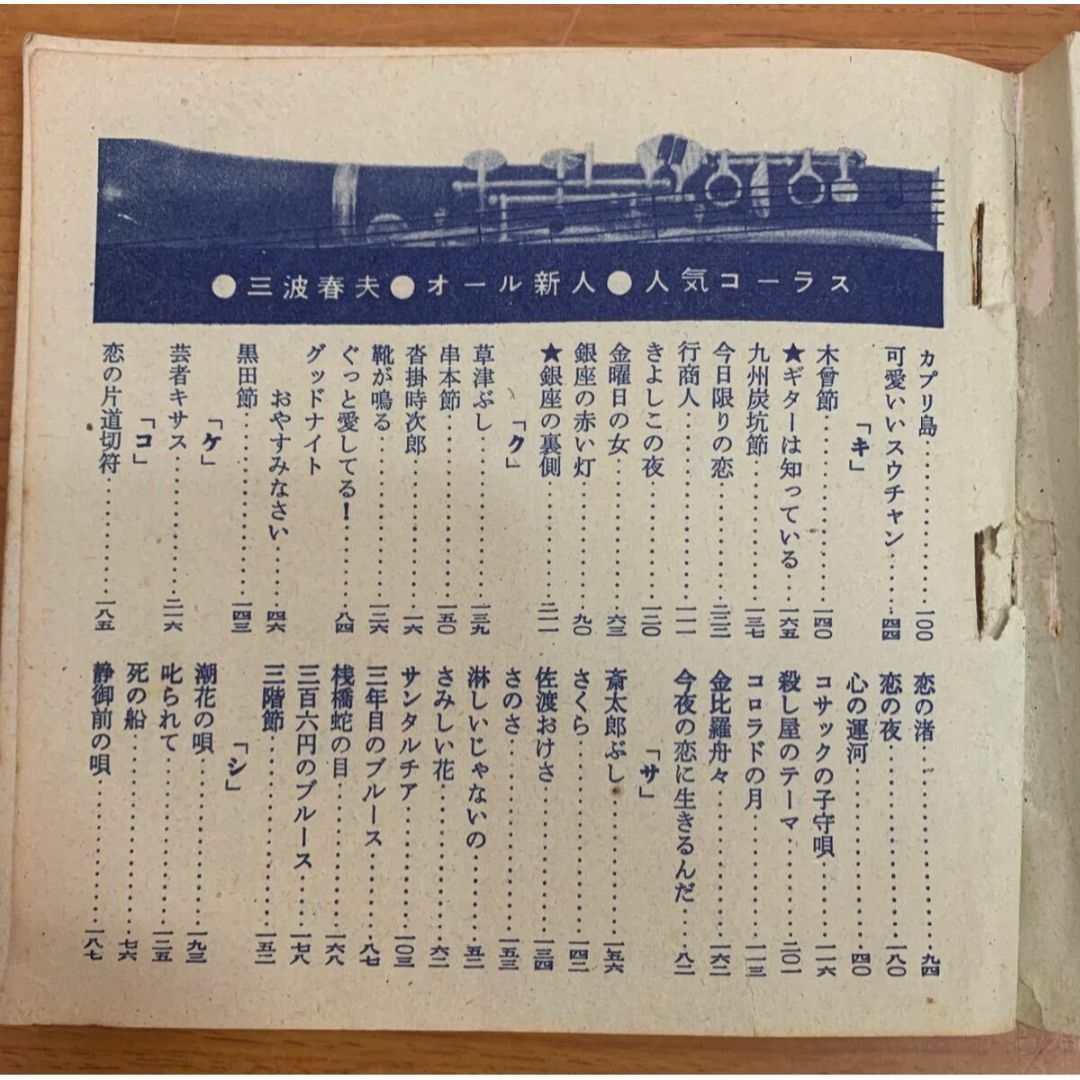 ●三波春夫●オール新人●人気コーラス
カプリ島……100
可愛いいスウチャン……四四
「キ」
木曾節……一四〇
★ギターは知っている……一六五
九州炭坑節……一三七
今日限りの恋……二三二
行商人……一一一
きよしこの夜……一二〇
金曜日の女……六三
銀座の赤い灯……九〇
★銀座の裏側……二一一
「ク」
草津ぶし……一三九
串本節……一五〇
沓掛時次郎……一六
靴が鳴る……一二六
ぐっと愛してる!……八四
グッドナイト
おやすみなさい……四六
黒田節……一四三
「ケ」
芸者キサス……二一六
「コ」
恋の片道切符……一八五
恋の渚……九四
恋の夜……一八〇
心の運河……四〇
コサックの子守唄……一一六
殺し屋のテーマ……二〇一
コロラドの月……一一三
金比羅舟々……一六二
今夜の恋に生きるんだ……八二
「サ」
斎太郎ぶし……一五六
さくら……一四二
佐渡おけさ……一三四
さのさ……一五三
淋しいじゃないの……五二
さみしい花……六二
サンタルチア……一〇三
三年目のブルース……八七
桟橋蛇の目……一六八
三百六円のブルース……一七八
三階節……一五二
「シ」
潮花の唄……一九三
叱られて……一二五
死の船……七六
静御前の唄……一八七